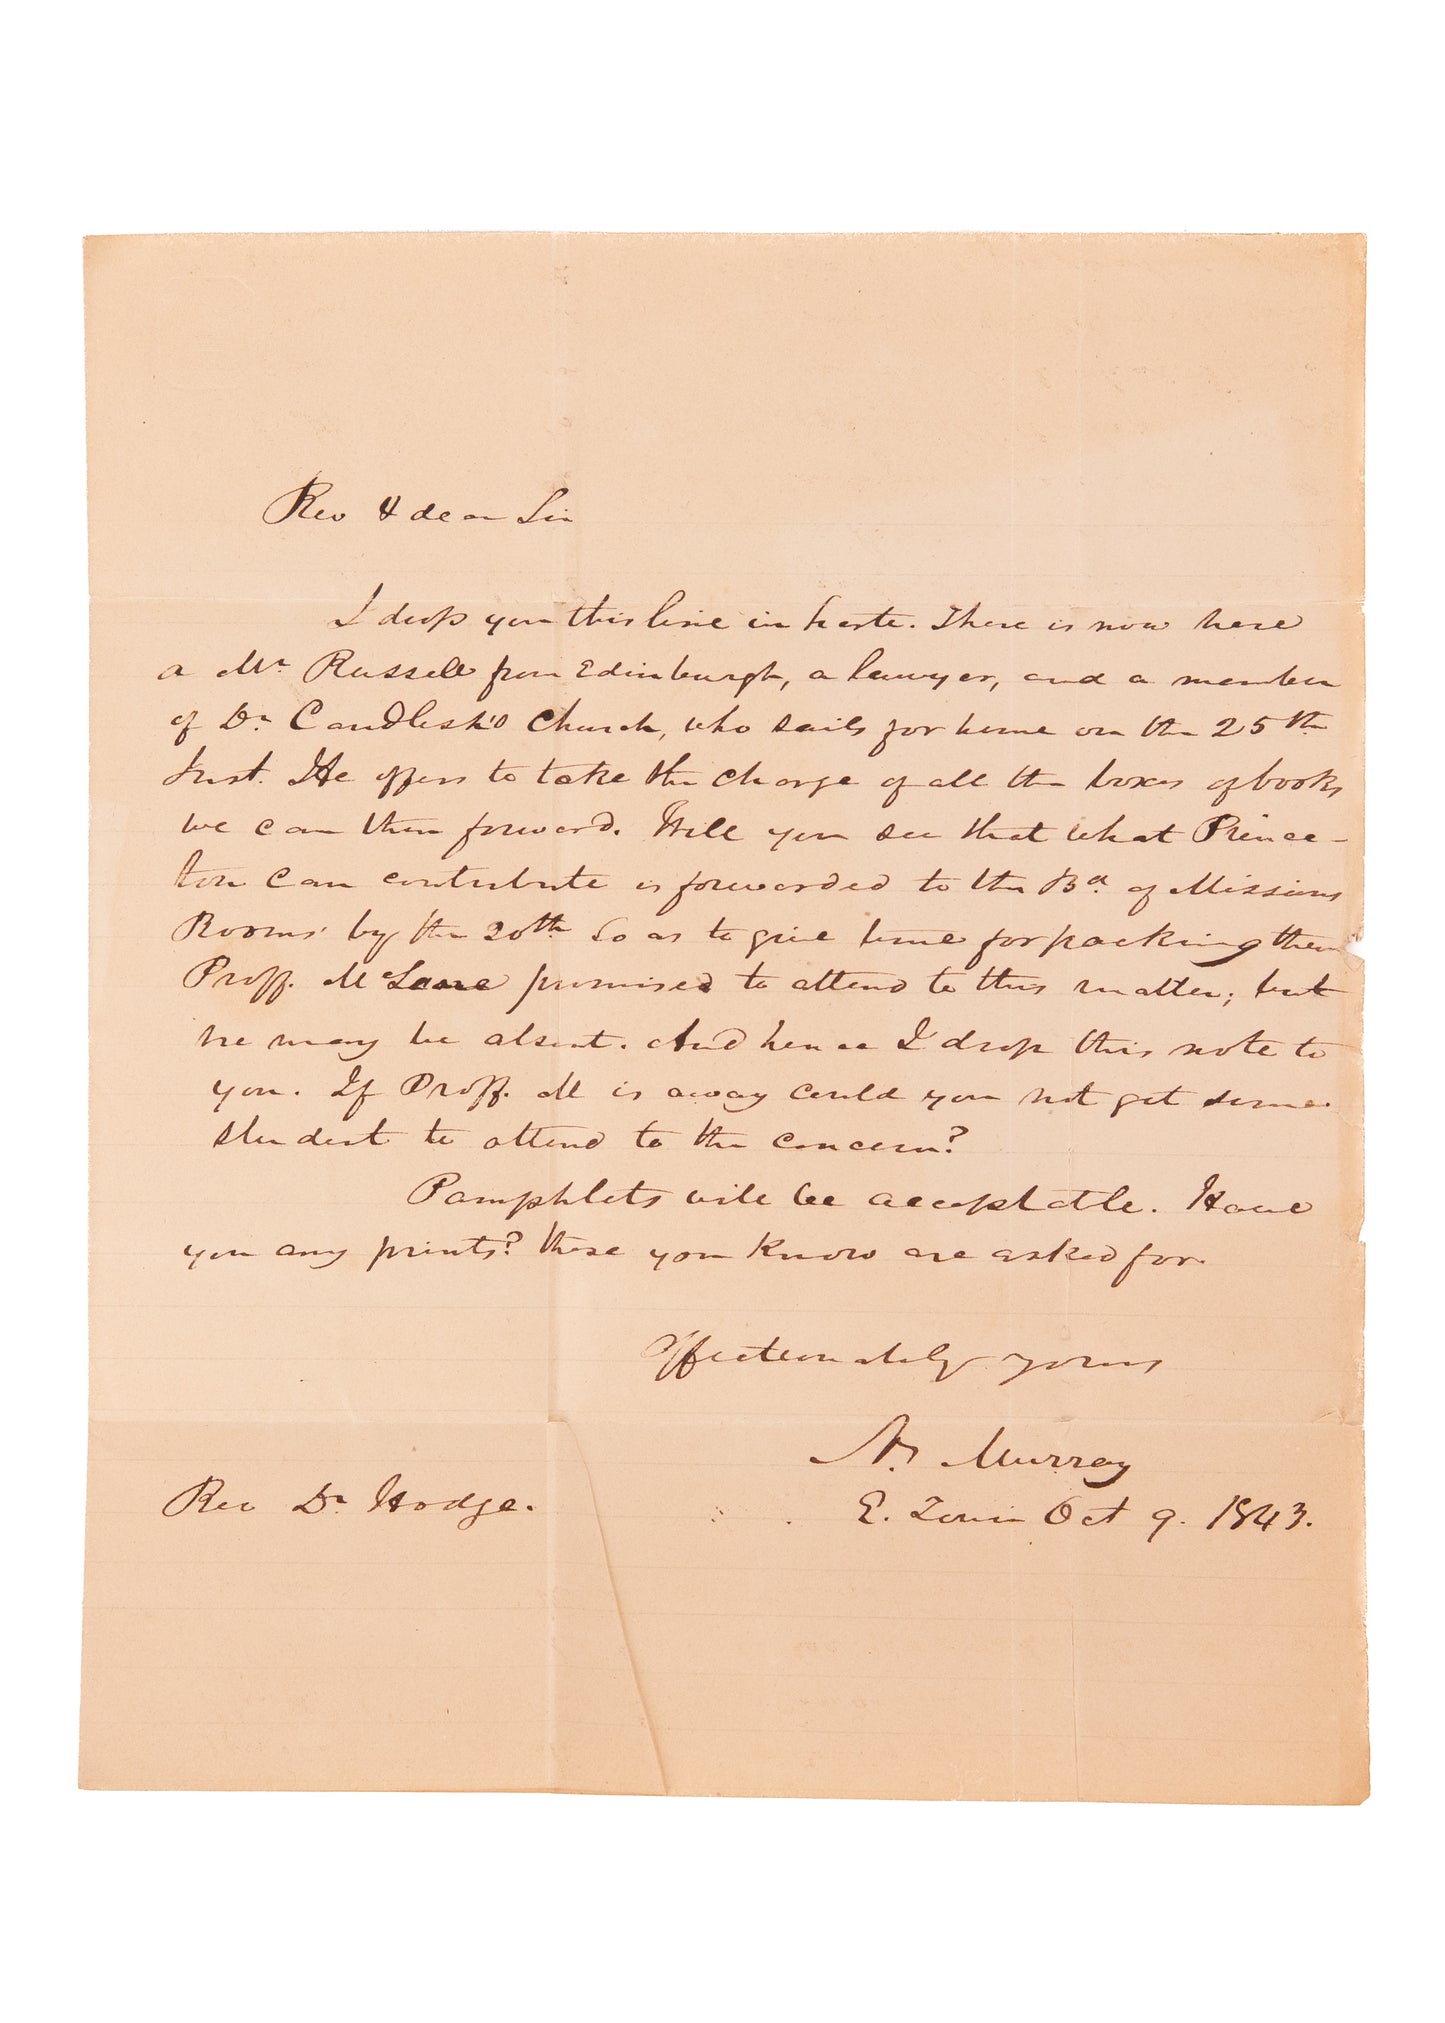 Rev & dear Sir
I drop you this line in haste. There is now here
a Mr Russell from Edinburgh, a lawyer, and a member
of Dr Candlish's Church, who sails for home on the 25th
Inst. He offers to take the charge of all the boxes of books
we can then forward. Will you see that what Prince-
ton can contribute is forwarded to the Bd. of Missions
Rooms by the 20th so as to give time for packing them
Proff. McLane promised to attend to this matter; but
he may be absent. And hence I drop this note to
you. If Proff. M is away could you not get some
student to attend to the concern?
Pamphlets will be acceptable. Have
you any prints? these you know are asked for.
Affectionately yours
N. Murray
Rev Dr Hodge.
E. Town Oct 9. 1843.